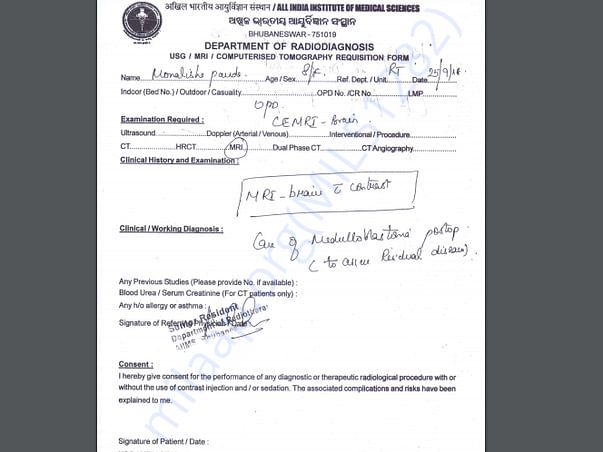 अखिल भारतीय आयुर्विज्ञान संस्थान / ALL INDIA INSTITUTE OF MEDICAL SCIENCES
BHUBANESWAR - 751019
DEPARTMENT OF RADIODIAGNOSIS
USG / MRI / COMPUTERISED TOMOGRAPHY REQUISITION FORM
Name Monalisha panda Age / Sex 8/F Ref. Dept. / Unit RT Date 25/9/18
Indoor (Bed No.) / Outdoor / Casuality OPD OPD No. /CR No. LMP
Examination Required : CEMRI - Brain
Ultrasound Doppler (Arterial / Venous) Interventional / Procedure
CT HRCT MRI Dual Phase CT CT Angiography
Clinical History and Examination :
MRI - brain c̄ contrast
Clinical / Working Diagnosis : Case of Medulloblastoma postop
( to assess Residual disease)
Any Previous Studies (Please provide No. if available) :
Blood Urea / Serum Creatinine (For CT patients only) :
Any h/o allergy or asthma :
Signature of Referring Physician / Date :
Senior Resident
Department of Radiotherapy
AIIMS, Bhubaneswar
Consent :
I hereby give consent for the performance of any diagnostic or therapeutic radiological procedure with or
without the use of contrast injection and / or sedation. The associated complications and risks have been
explained to me.
Signature of Patient / Date :
milaap.org(MILS1282)